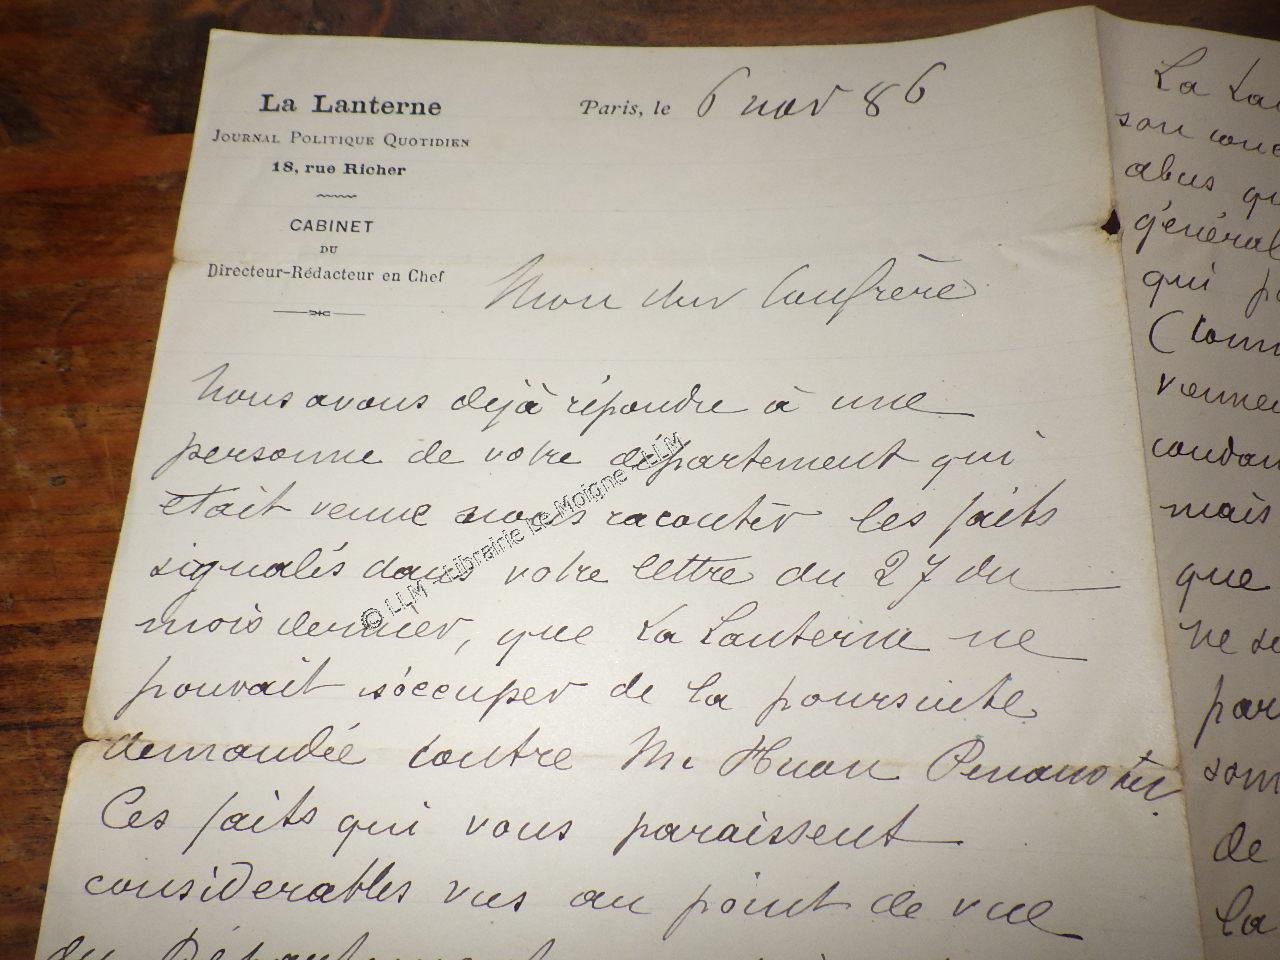 La Lanterne
Journal Politique Quotidien
18, rue Richer
CABINET
DU
Directeur-Rédacteur en Chef
Paris, le 6 nov 86
Mon cher Confrère
Nous avons déjà répondu à une
personne de votre département qui
était venue nous raconter les faits
signalés dans votre lettre du 27 du
mois dernier, que La Lanterne ne
pouvait s'occuper de la poursuite
demandée contre Mr Huon Penanster.
Ces faits qui vous paraissent
considerables vus au point de vue
du Département
La La
son conc
abus qu
général
qui p
(comm
vienne
condam
mais
que
ne se
par
som
de
la
© LLM - Librairie Le Moigne - LLM